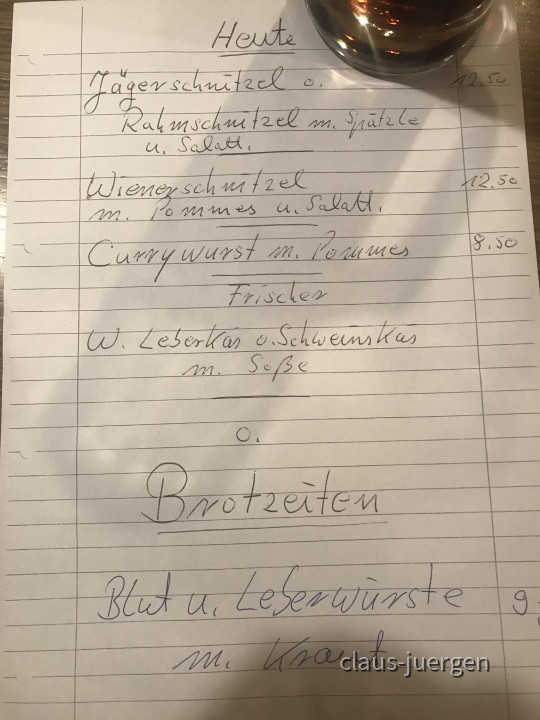 Heute
Jägerschnitzel o. 12.50
Rahmschnitzel m. Spätzle
u. Salatt.
Wienerschnitzel 12.50
m. Pommes u. Salatt.
Currywurst m. Pommes 8.50
Frischer
W. Leberkäs o. Schweinskäs
m. Soße
o.
Brotzeiten
Blut u. Leberwürste 9.
m. Kraut
claus-juergen